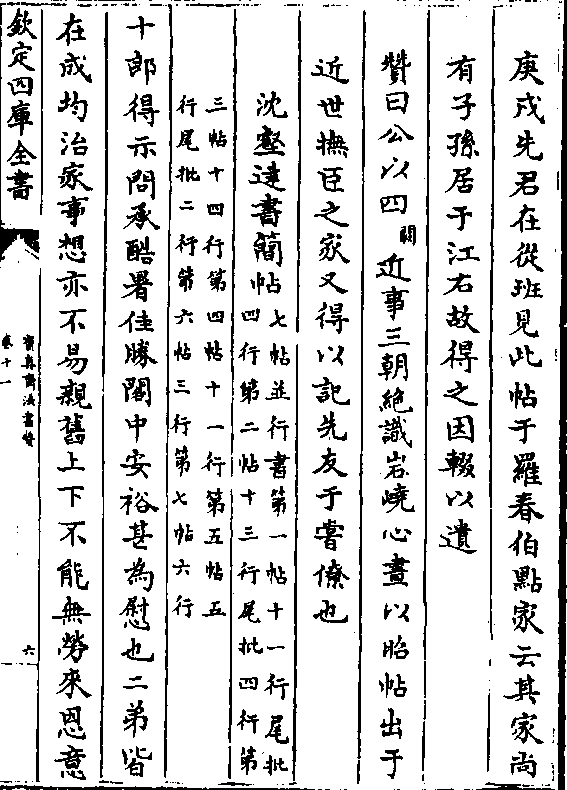 庚戌先君在從班見此帖于羅春伯㸃家云其家尚
有子孫居于江右故得之因輟以遺
贊曰公以四闕近事三朝絶識岩嶢心畫以昭帖出于
近世撫臣之家又得以記先友于嘗僚也
沈壑逹書簡帖七帖並行書第一帖十一行尾批
四行第二帖十三行尾批四行第
三帖十四行第四帖十一行第五帖五
行尾批二行第六帖三行第七帖六行
十郎得示問承酷暑佳勝閤中安裕甚為慰也二弟皆
在成均治家事想亦不易親舊上下不能無勞來恩意
欽定四庫全書
寳真齋法書贊
卷十一
六